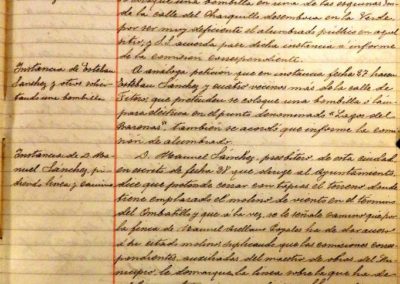 coloque una bombilla en una de las esquinas en
de la calle del Charquillo desemboca en la Verde
por ser muy deficiente el alumbrado publico en aquel
sitio, y S.S. acuerda pase dicha instancia a informe
de la comision correspondiente.
Instancia de Esteban
Sanchez y otros solici
tando una bombilla
A análoga peticion que en instancia fecha 27 hacen
Esteban Sanchez y cuatro vecinos mas de la calle de
que pretenden se coloque una bombilla o lám
para eléctrica en el punto denominado "Lagar del
tambien se acordo que informe la comi
sión de alumbrado.
Instancia de D. Ma
nuel Sánchez, pi
diendo linea y camino
D. Manuel Sánchez, presbítero, de esta ciudad,
en escrito de fecha 28 que dirige al Ayuntamiento,
dice que pretende cercar con tapias el terreno donde
tiene emplazado el molino de viento en el termino
del y que a la vez, se le señale camino que por
la finca de Manuel Arellano ha de dar acceso
a su citado molino, suplicando que las comisiones corres
pondientes, auxiliadas del maestro de obras del Mu
nicipio, le demarquen la linea sobre la que ha de